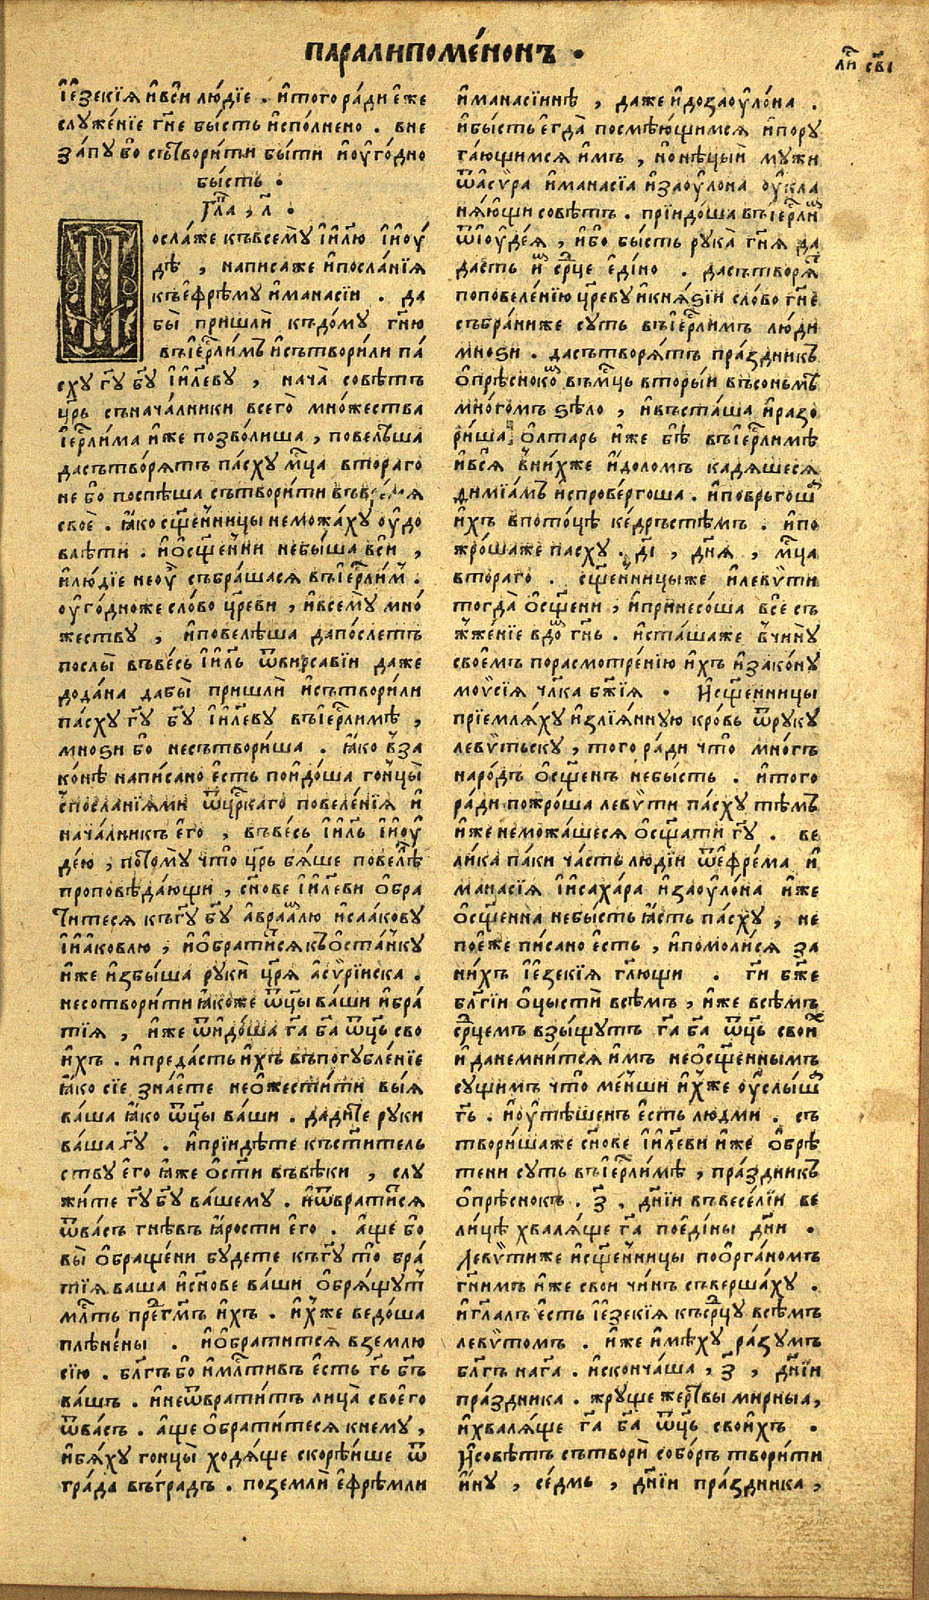 паралипоме́нонъ .
ли҃ св҃і
і҆езекі́ѧ и҆всѝ лю́дїе . и҆того ра́ди е҆же
слꙋже́нїе гн҃е бы́сть и҆спо́лнено . вне
за́пꙋ бо сътвори́ти бы́ти и҆оу҆го́дно
бы́сть .
гла̀ , л҃ .
осла́же къвсемꙋ і҆и҃лю і҆и҆оу҆́
дѣ , написа́же и҆посла́нїѧ
къе҆фре́мꙋ и҆манасі́и . да
бы̀ пришлѝ къдо́мꙋ гн҃ю
въі҆ерⷭ҇ли́мъ и҆сътвори́ли па́
схꙋ гꙋ҃ бг҃ꙋ і҆и҃левꙋ , нача̀ совѣ́тъ
цр҃ь съначалники всего̀ мно́жества
і҆ерⷭ҇ли́ма и҆́же позво́лиша , повелѣ́ша
дасътворѧ́тъ па́схꙋ мцⷭ҇а втораго
не бо поспѣ́ша сътвори́ти
своѐ . ꙗ҆́ко сщ҃е́нницы неможа́хꙋ оу҆до
влѣ́ти . и҆ѻ҆сщ҃е́нни небы́ша всѝ ,
и҆лю́дїе неоу҆̀ събра́шасѧ въі҆ерⷭ҇ли́мъ .
оу҆го́дноже сло́во цр҃еви , и҆всемꙋ̀ мно́
жествꙋ , и҆повелѣ́ша дапо́слетъ
послы̀ въве́сь і҆и҃ль ѿвирсаві́и даже
дода́на дабы̀ пришлѝ и҆сътвори́ли
па́схꙋ гꙋ҃ бг҃ꙋ і҆и҃левꙋ въі҆ерⷭ҇ли́мѣ ,
мно́ѕи бо несътвори́ша . ꙗ҆́ко в̾за
ко́нѣ написано е҆́сть пои҆до́ша гонцы̀
с̾посла́нїѧми ѿцрⷭ҇каго повеле́нїѧ и҆
нача́лникъ е҆го̀ , въве́сь і҆и҃ль і҆и҆оу҆
де́ю , пото́мꙋ что̀ цр҃ь бѧ́ше повелѣ̀
проповѣ́дающи , сн҃ове і҆и҃леви ѻ҆бра
тите́сѧ къгꙋ҃ бг҃ꙋ а҆враа́млю и҆саа́ковꙋ
і҆і҆а́ковлю , и҆ѻ҆брати́тсѧ къѻ҆ста́нкꙋ
и҆́же и҆збы́ша рꙋкѝ цр҃ѧ а҆сѵрі́йска .
несотвори́ти ꙗ҆́коже ѿц҃ы ва́ши и҆бра́
тїѧ , и҆́же ѿидо́ша га҃ ба҃ ѿц҃ъ сво
и҆́хъ . и҆преда́сть и҆́хъ въпогꙋбле́нїе
ꙗ҆́ко сїѐ зна́ете неѻ҆жести́ти вы́ѧ
ваша ꙗ҆́ко ѿц҃ы ва́ши . дади́те рꙋки
ваша гꙋ҃ . и҆прїидѣ́те къст҃и́тель
ствꙋ е҆го̀ ꙗ҆́же ѻ҆ст҃и въвѣ́ки , слꙋ
жи́те гꙋ҃ бг҃ꙋ ва́шемꙋ . и҆ѿврати́тсѧ
ѿва́съ гнѣ́въ ꙗ҆́рости е҆го̀ . а҆́ще бо
вы̀ ѻ҆браще́ни бꙋдете къгꙋ҃ то̀ бра́
тїѧ ваша и҆сн҃ове ва́ши ѻ҆брѧ́щꙋтъ
млⷭ҇ть и҆́хъ . и҆́хже ведо́ша
плѣне́ны . и҆ѻ҆брати́тсѧ вземлю
сїю . блг҃ъ бо и҆млⷭ҇тивъ е҆́сть гь҃ бг҃ъ
ва́шъ . и҆неѿврати́тъ лица̀ своего
ѿва́съ . а҆́ще ѻ҆брати́тесѧ кнемꙋ ,
и҆бѧ́хꙋ гонцы̀ ходѧ́ще скорѣ́ише ѿ
гра́да въгра́дъ . поземлѝ е҆фре́мли
и҆манасі́инѣ , да́же и҆дозаоу҆ло́на .
и҆бы́сть е҆гда̀ посмѣю́щимсѧ и҆порꙋ
га́ющимсѧ и҆мъ , но нѣцыи мꙋ́жи
ѿаси́ра и҆манасі́а и҆заоу҆ло́на оу҆кла
нѧ́ющи совѣтъ . прїидо́ша въі҆ерⷭ҇ли́мъ
ѿі҆оу҆де́ѧ , и҆́бо бы́сть рꙋка̀ гн҃ѧ да
да́сть и҆мъ ср҃це е҆ди́но . дасътворѧ́тъ
поповеле́нїю цр҃евꙋ и҆кнѧ́ѕїи сло́во гн҃е
събра́ниже сꙋть въі҆ерⷭ҇ли́мъ лю́ди
мно́ѕи . дасътворѧ́тъ пра́здникъ
ѻ҆прѣсноко́въ въмцⷭ҇ъ вторы́и въсоньмѣ
мно́гомъ ѕѣло̀ , и҆въста́ша и҆разо
ри́ша ѻ҆лта́рь и҆́же бѣ̀ въі҆ерⷭ҇ли́мѣ
и҆всѧ̀ в̾ни́хже и҆́доломъ кадѧ́шесѧ
димїа́мъ и҆спрове́ргоша . и҆поврьгошѧ
и҆́хъ впото́цѣ ке́дръстѣмъ . и҆по
жро́шаже пасхꙋ . д҃і , днѧ̀ , мцⷭ҇а
втораго . сщ҃е́нницыже и҆леви́ти
тогда̀ ѻ҆сщ҃ени , и҆принесо́ша все́съ
жже́нїе вдо́мъ гн҃ь . и҆ста́шаже в̾чи́нꙋ
своемъ порасмотре́нїю и҆́хъ и҆зако́нꙋ
моѵсі́ѧ чл҃ка бж҃їѧ . и҆сщ҃е́нницы
прїемлѧ́хꙋ и҆злїѧ́ннꙋю кро́вь ѿрꙋкꙋ
леви́тьскꙋ , того ра́ди что̀ мно́гъ
наро́дъ ѻ҆сщ҃енъ небы́сть . и҆того
ра́ди пожро́ша леви́ти па́схꙋ тѣ́мъ
и҆́же неможа́шесѧ ѻ҆сщ҃ати гꙋ҃ . ве
ли́ка па́ки ча́сть лю́дїи ѿефре́ма и҆
манасі́ѧ і҆и҆саха́ра и҆заоу҆ло́на и҆́же
ѻ҆сщ҃е́нна небы́сть ꙗ҆́сть па́схꙋ , не
пое҆́же пи́сано е҆́сть , и҆помоли́сѧ за
ни́хъ і҆езекі́ѧ гл҃ющи . гн҃ бж҃е
блг҃і́и ѻ҆чы́сти всѣмъ , и҆́же всѣмъ
ср҃цемъ взы́щꙋтъ га҃ ба҃ ѿц҃ъ свои́хъ
и҆данемни́тсѧ и҆мъ неѻ҆сщ҃еннымъ
сꙋ́щимъ что̀ ме́нши и҆́хже оу҆слы́ша
гь҃ . и҆оу҆тѣ́шенъ е҆́сть людми . съ
твори́шаже сн҃ове і҆и҃леви и҆́же ѻ҆брѣ́
тени сꙋть въі҆ерⷭ҇ли́мѣ , пра́здникъ
ѻ҆прѣснокъ . з҃ . дн҃їи въвесе́лїи ве
ли́цѣ хвалѧ́ще га҃ поеди́ны дн҃и .
леви́тиже и҆сщ҃е́нницы поѻ҆рга́номъ
гн҃имъ и҆́же свои чи́нъ съверша́хꙋ .
и҆гл҃алъ е҆́сть і҆езекі́ѧ къср҃цꙋ всѣмъ
леви́томъ . и҆́же и҆мѣ́хꙋ ра́зꙋмъ
блг҃ъ на га҃ . и҆сконча́ша , з҃ , дн҃їи
пра́здника . жрꙋще же́ртвы мирныа ,
и҆хвалѧ́ще га҃ ба҃ ѿц҃ъ свои́хъ .
и҆совѣ́тъ сътворѝ собо́ръ твори́ти
и҆́нꙋ , се́дмь , дн҃їи пра́здника ,